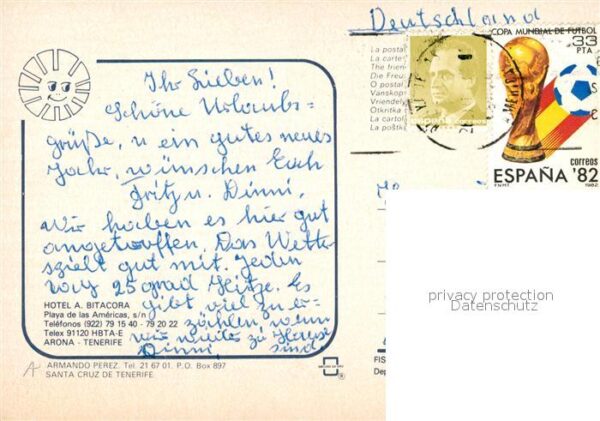 Deutschland
Ihr Lieben!
Schöne Urlaubs=
grüße, u ein gutes neues
Jahr, wünschen Euch
Fritz u. Dinni,
Wir haben es hier gut
angetroffen. Das Wetter
spielt gut mit. Jeden
25 grad Hitze. Es
gibt viel zu er=
zählen, wenn
wir wieder zu Hause
Dinni, sind
HOTEL A. BITACORA
Playa de las Américas, s/n
Teléfonos (922) 79 15 40 - 79 20 22
Telex 91120 HBTA-E
ARONA - TENERIFE
ARMANDO PEREZ. Tel. 21 67 01. P.O. Box 897
SANTA CRUZ DE TENERIFE.
La postal
La carte
The frien
Die Freu
O postal
Vanskop
Vriendely
Otkritka
La cartol
La poštk
ESPAÑA correos
COPA MUNDIAL DE FUTBOL
33
PTA
correos
ESPAÑA '82
F.N.M.T. 1982
FIS
Dep
privacy protection
Datenschutz